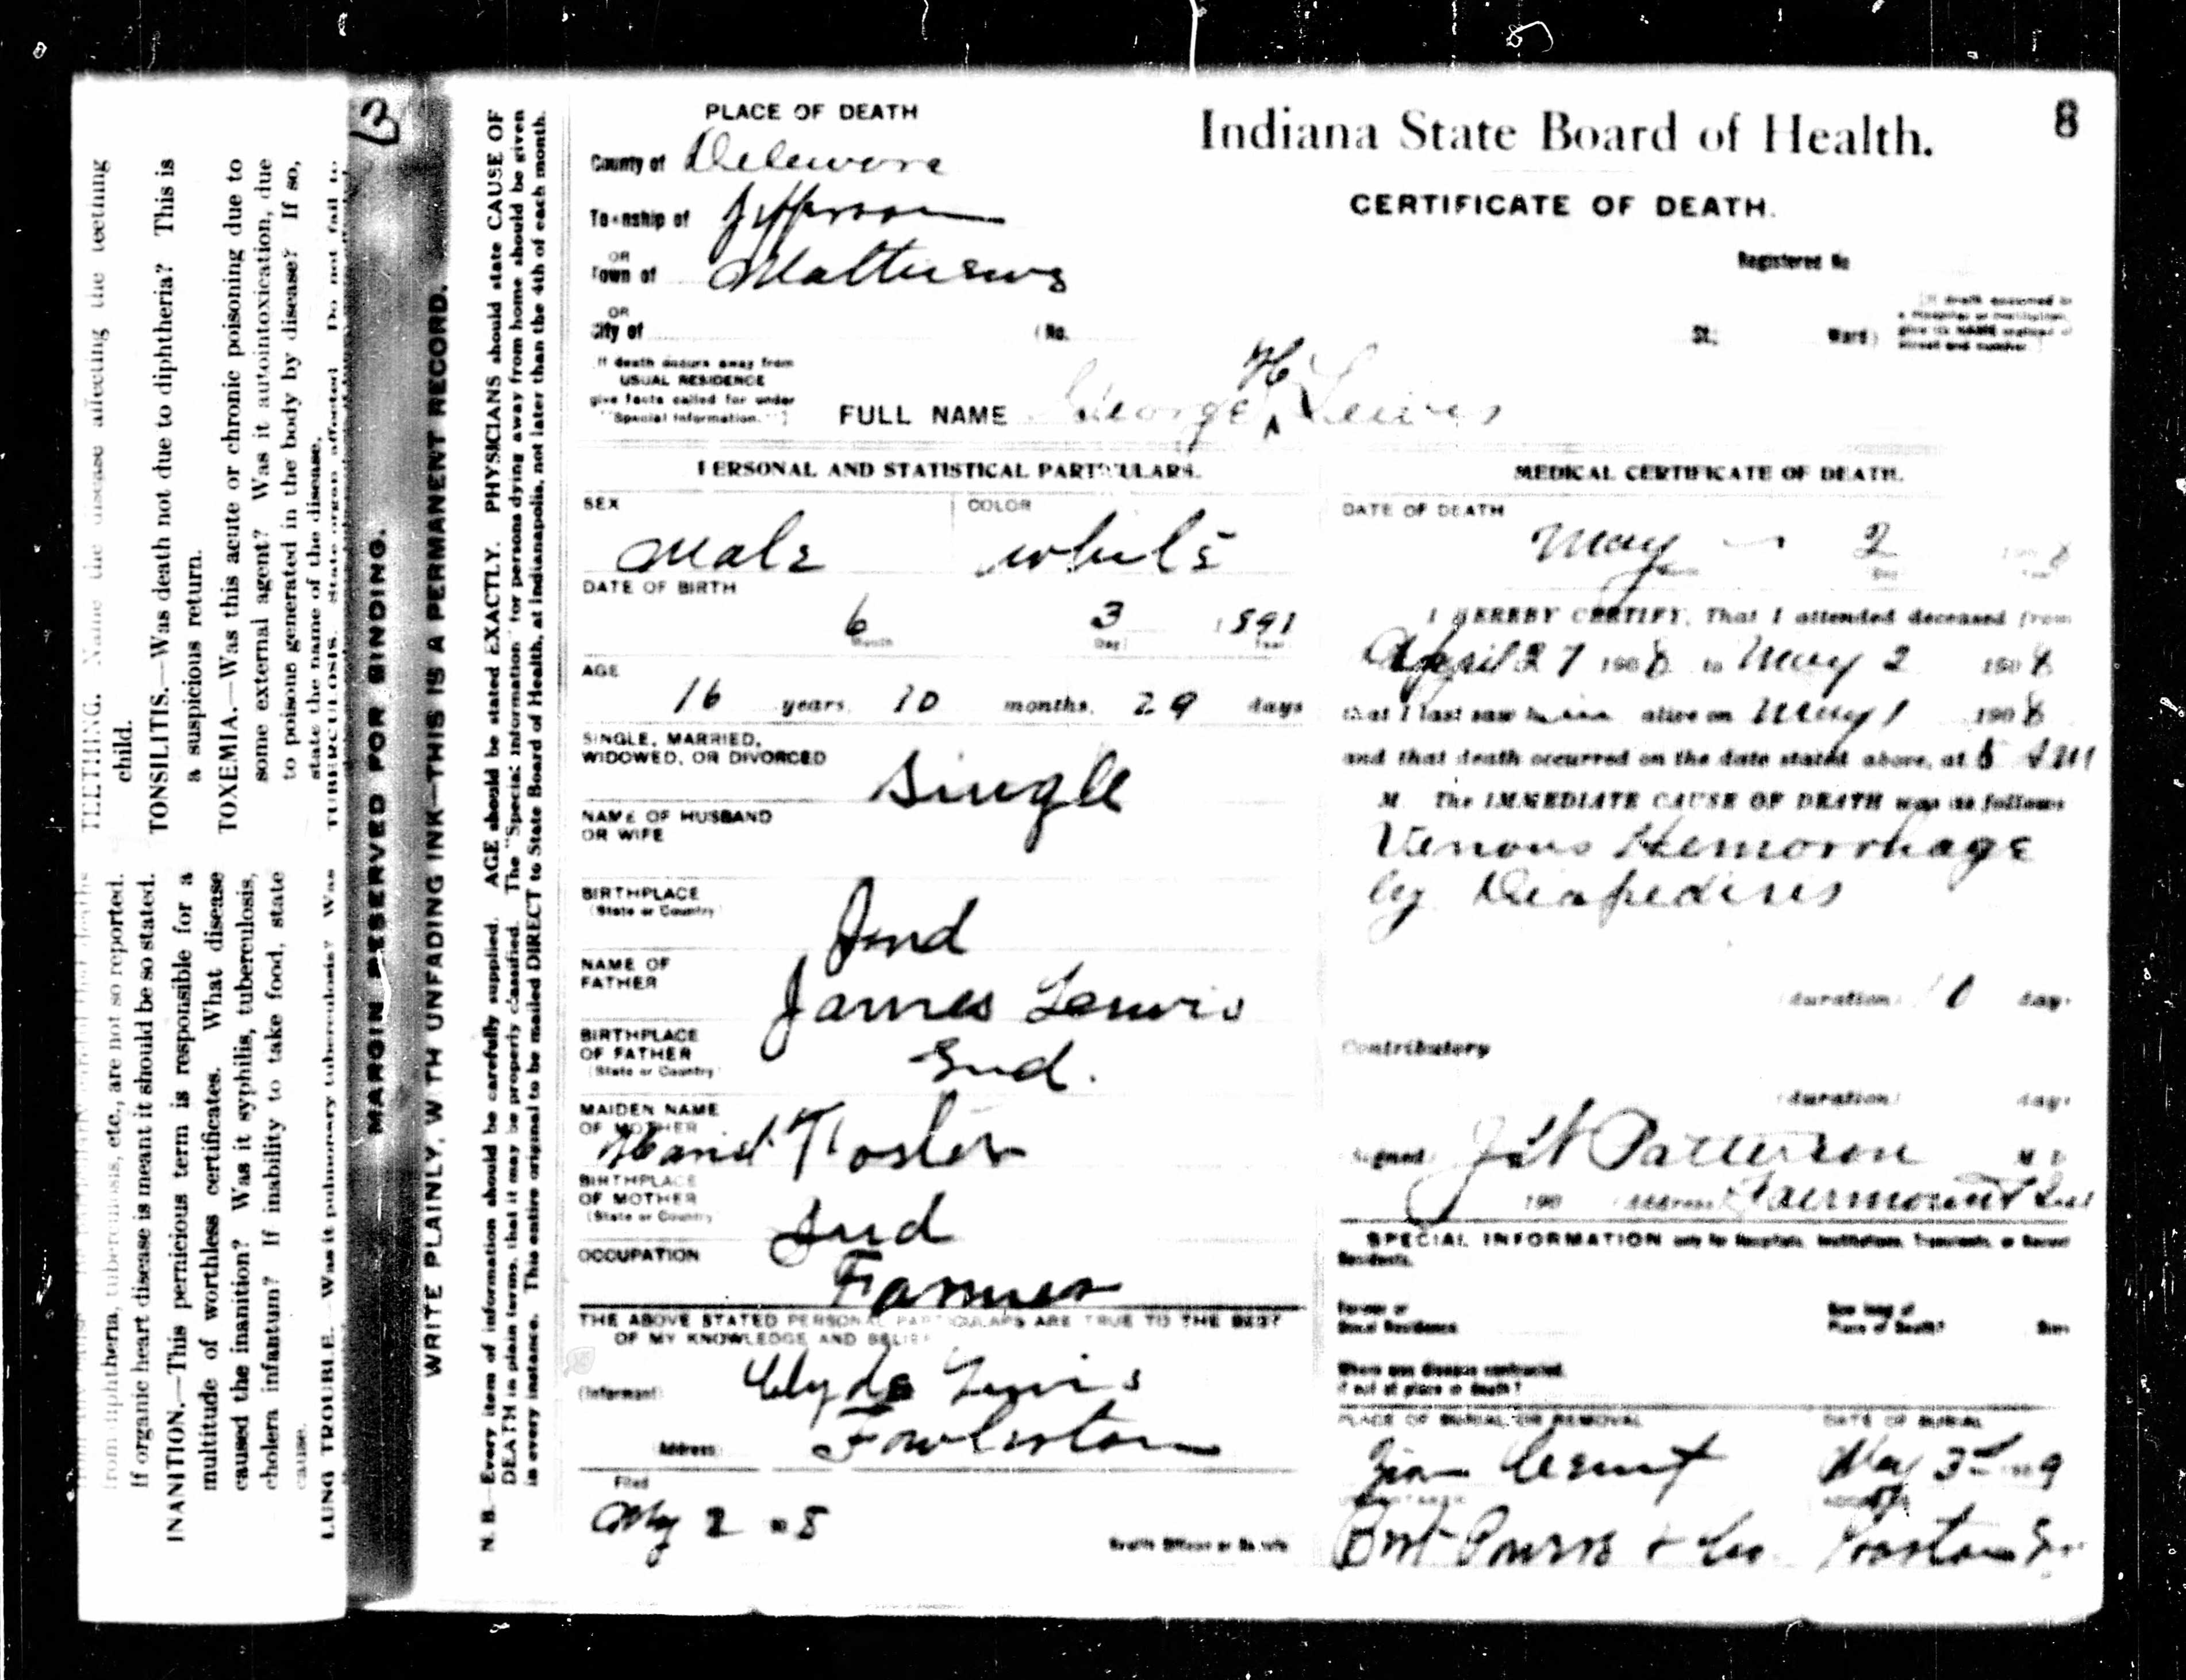 8
3
Indiana State Board of Health.
CERTIFICATE OF DEATH.
Registered No
PLACE OF DEATH
County of Delewore
Township of Jefferson
OR
Town of Matthews
OR
City of (No. St; Ward)
[If death occurred in a Hospital or Institution, give its NAME instead of street and number]
If death occurs away from
USUAL RESIDENCE
give facts called for under
"Special Information."]
FULL NAME George H Lewis
^
PERSONAL AND STATISTICAL PARTICULARS.
SEX
Male
COLOR
white
DATE OF BIRTH
6 3 1891
Month Day Year
AGE
16 years, 10 months, 29 days
SINGLE, MARRIED,
WIDOWED, OR DIVORCED
Single
NAME OF HUSBAND
OR WIFE
BIRTHPLACE
(State or Country)
Ind
NAME OF
FATHER
James Lewis
BIRTHPLACE
OF FATHER
(State or Country)
Ind.
MAIDEN NAME
OF MOTHER
Foster
BIRTHPLACE
OF MOTHER
(State or Country)
Ind
OCCUPATION
Farmer
THE ABOVE STATED PERSONAL PARTICULARS ARE TRUE TO THE BEST
OF MY KNOWLEDGE AND BELIEF
(Informant) Clyde Lewis
Address Fowlerton
Filed
May 2 08
Health Officer or Deputy
MEDICAL CERTIFICATE OF DEATH.
DATE OF DEATH
May 2 1908
I HEREBY CERTIFY, That I attended deceased from
April 27 1908 to May 2 1908
that I last saw him alive on May 1 1908
and that death occurred on the date stated above, at 5 AM
M. The IMMEDIATE CAUSE OF DEATH was as follows
Venous Hemorrhage
by Diapedisis
(duration) 10 days
Contributory
(duration) days
Signed Patterson M D
190 (Address) Fairmount Ind
SPECIAL INFORMATION only for Hospitals, Institutions, Transients, or Recent
Residents.
Former or
Usual Residence
How long at
Place of Death? Days
Where was disease contracted,
if not at place of death?
PLACE OF BURIAL OR REMOVAL
Zion Cemt
DATE OF BURIAL
May 3rd 190
UNDERTAKER
Bert & Co
ADDRESS
Gaston
MARGIN RESERVED FOR BINDING.
WRITE PLAINLY, WITH UNFADING INK—THIS IS A PERMANENT RECORD.
N. B.—Every item of information should be carefully supplied. AGE should be stated EXACTLY. PHYSICIANS should state CAUSE OF
DEATH in plain terms, that it may be properly classified. The "Special Information" for persons dying away from home should be given
in every instance. This entire original to be mailed DIRECT to State Board of Health, at Indianapolis, not later than the 4th of each month.
TEETHING. Name the disease affecting the teething
child.
TONSILITIS.—Was death not due to diphtheria? This is
a suspicious return.
TOXEMIA.—Was this acute or chronic poisoning due to
some external agent? Was it autointoxication, due
to poisons generated in the body by disease? If so,
state the name of the disease.
TUBERCULOSIS. State organ affected. Do not fail to
from diphtheria, tuberculosis, etc., are not so reported.
If organic heart disease is meant it should be so stated.
INANITION.—This pernicious term is responsible for a
multitude of worthless certificates. What disease
caused the inanition? Was it syphilis, tuberculosis,
cholera infantum? If inability to take food, state
cause.
LUNG TROUBLE. Was it pulmonary tuberculosis? Was